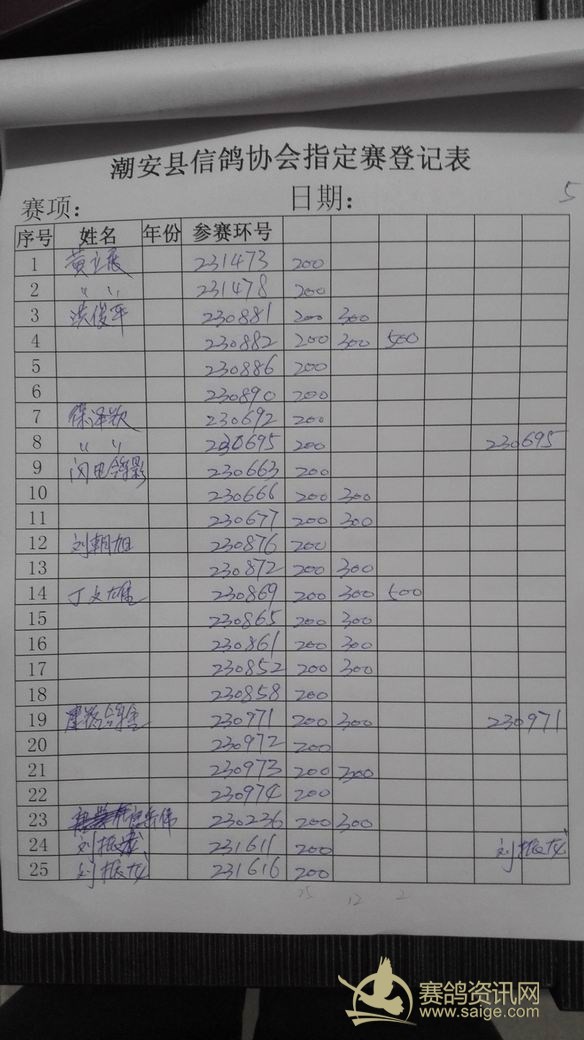 5
潮安县信鸽协会指定赛登记表
赛项: 日期:
序号 姓名 年份 参赛环号
1 231473 200
2 〃 〃 231478 200
3 洪俊平 230881 200 300
4 230882 200 300 500
5 230886 200
6 230890 200
7 230692 200
8 〃 〃 230695 200 230695
9 闪电鸽影 230663 200
10 230666 200 300
11 230677 200 300
12 刘朝旭 230876 200
13 230872 200 300
14 丁文雄 230869 200 300 500
15 230865 200 300
16 230861 200 300
17 230852 200 300
18 230858 200
19 鸽舍 230971 200 300 230971
20 230972 200
21 230973 200 300
22 230974 200
23 230236 200 300
24 刘振龙 231611 200 刘振龙
25 刘振龙 231616 200
25 12 2
赛鸽资讯网
www.saige.com